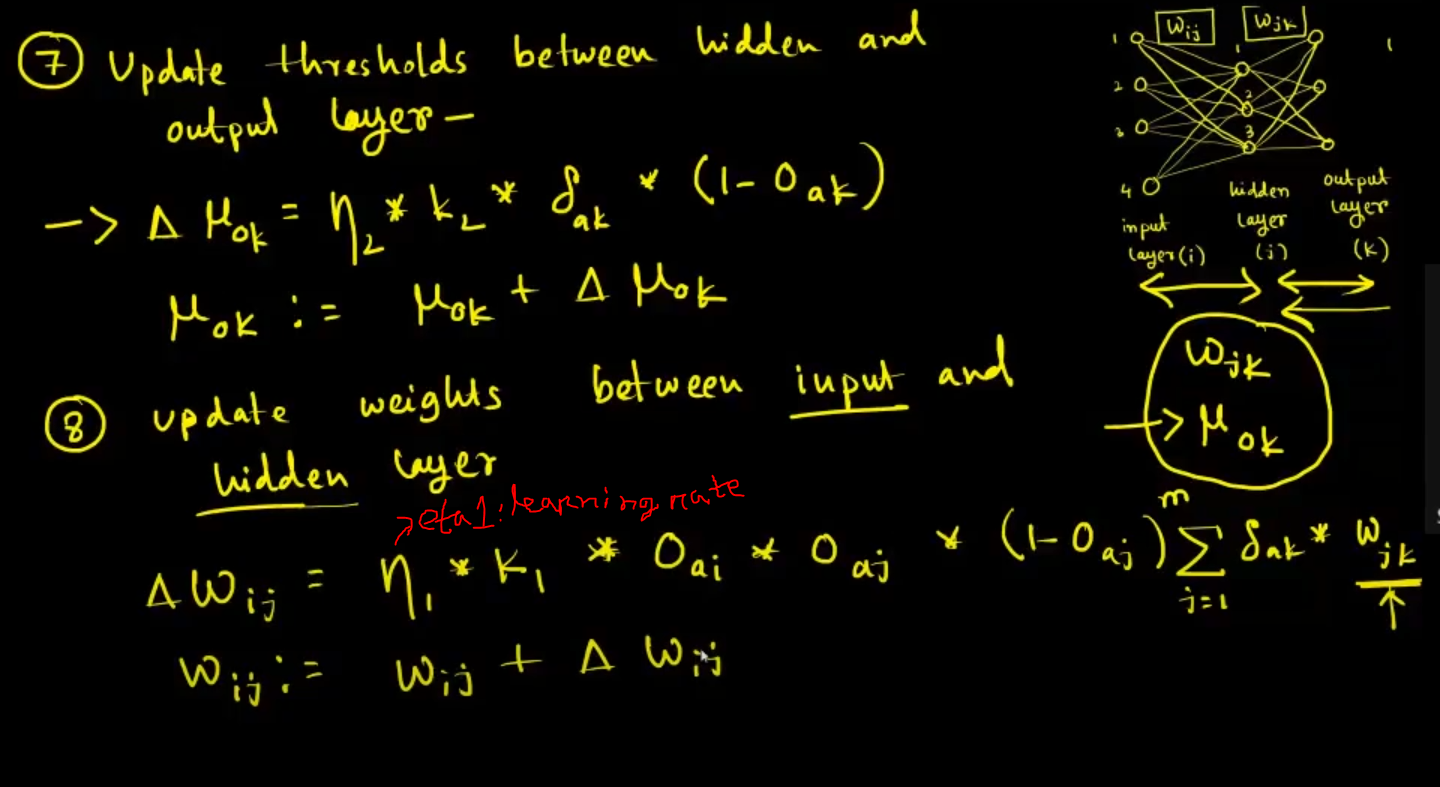 ⑦ Update thresholds between hidden and
output layer –
-> Δ μok = η2 * k2 * δak * (1 - Oak)
μok := μok + Δ μok
⑧ update weights between input and
hidden layer
eta1: learning rate
Δ Wij = η1 * K1 * Oai * Oaj * (1 - Oaj) m Σ j=1 δak * Wjk
↑
Wij := Wij + Δ Wij
Wij Wjk
1 1
2 2
3 3
4
input layer (i)
hidden layer (j)
output layer (k)
Wjk
-> μok